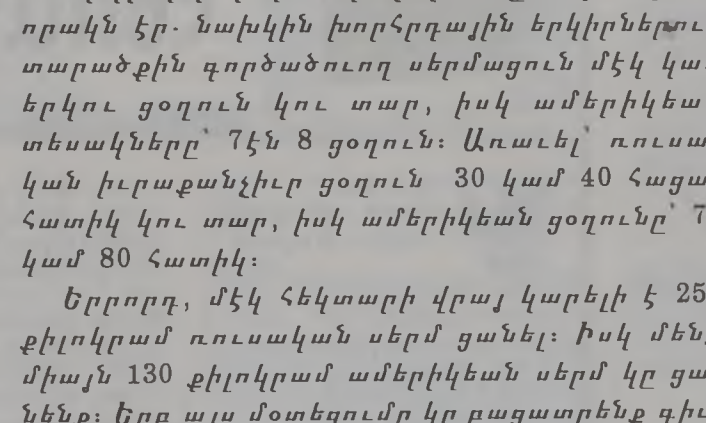 որակն էր. նախկին խորհրդային երկիրներու
տարածքին գործածուող սերմացուն մէկ կա
երկու ցօղուն կու տար, իսկ ամերիկեա
տեսակները՝ 7էն 8 ցօղուն։ Առաւել՝ ռուսա
կան իւրաքանչիւր ցօղուն 30 կամ 40 հացա
հատիկ կու տար, իսկ ամերիկեան ցօղունը՝ 7
կամ 80 հատիկ։
Երրորդ, մէկ հեկտարի վրայ կարելի է 25
քիլոկրամ ռուսական սերմ ցանել։ Իսկ մեն
միայն 130 քիլոկրամ ամերիկեան սերմ կը ցա
նենք։ Երբ այս մօտեցումը կը բացատրենք գիւ